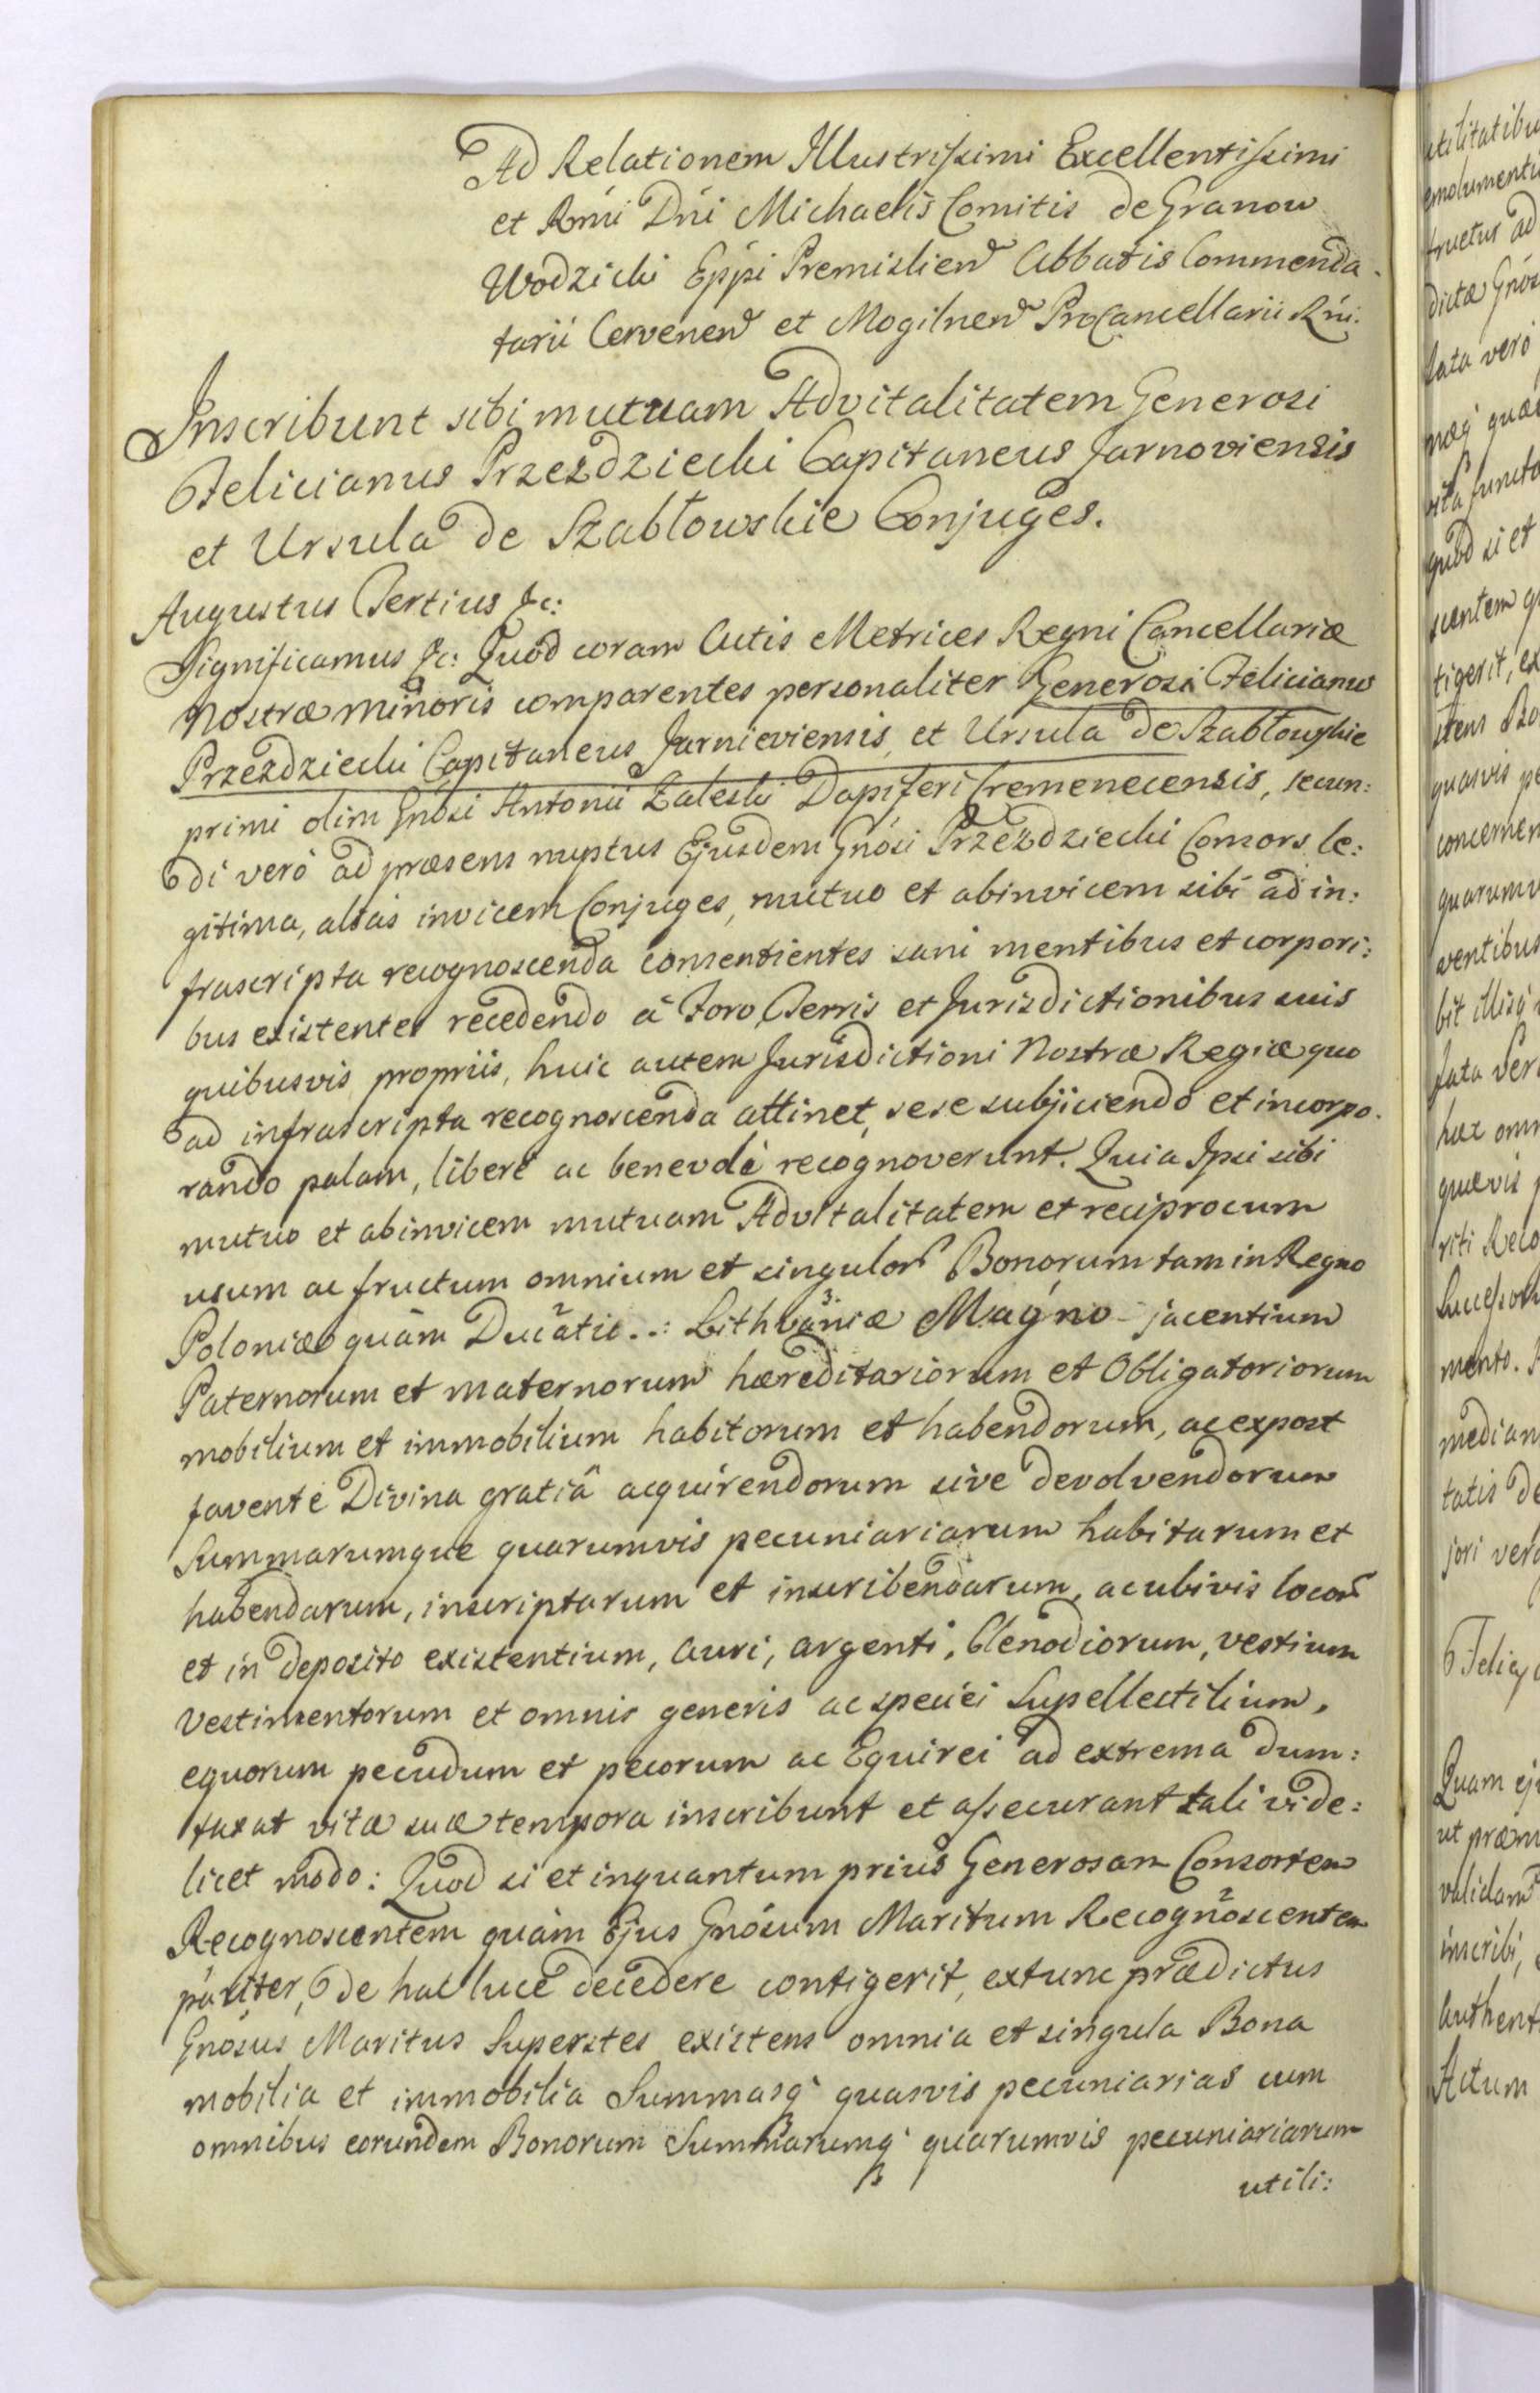 Ad Relationem Illustrissimi Excellentissimi
et Rmi Dni Michaelis Comitis de Granow
Wodzicki Eppi Premislien Abbatis Commenda-
tarii Cervenen et Mogilnen ProCancellarii Rni.
Inscribunt sibi mutuam Advitalitatem Generosi
Felicianus Przezdziecki Capitaneus Jarnoviensis
et Ursula de Szabłowskie Conjuges.
Augustus Tertius &c:
Significamus &c: Quod coram Actis Metrices Regni Cancellariæ
Nostræ minoris comparentes personaliter Generosi Felicianus
Przezdziecki Capitaneus Jarnieviensis et Ursula de Szabłowskie
primi olim Gnosi Antonii Zaleski Dapiferi Cremenecensis, secun:
di verò ad præsens nuptus Ejusdem Gnósi Przezdziecki Consors le:
gitima, aliàs invicem Conjuges, mutuo et abinvicem sibi ad in:
frascripta recognoscenda consentientes sani mentibus et corpori:
bus existentes recedendo à Foro, Terris et Jurisdictionibus suis
quibusvis propriis, huic autem Jurisdictioni Nostræ Regiæ quo
ad infrascripta recognoscenda attinet, sese subjiciendo et incorpo.
rando palam, liberè ac benevolè recognoverunt. Quia Ipsi sibi
mutuo et abinvicem mutuam Advitalitatem et reciprocum
usum ac fructum omnium et singulor Bonorum tam in Regno
Poloniæ quàm Ducatu..: Lithvaniæ Magno - jacentium
Paternorum et maternorum hæreditariorum et Obligatoriorum
mobilium et immobilium habitorum et habendorum, ac expost
favente Divina gratiâ acquirendorum sive devolvendorum
Summarumque quarumvis pecuniariarum habitarum et
habendarum, inscriptarum et inscribendarum, ac ubivis locor
et in deposito existentium, Auri, argenti, Clenodiorum, vestium
Vestimentorum et omnis generis ac speciei Supellectilium,
equorum pecudum et pecorum ac Equirei ad extrema dum:
taxat vitæ suæ tempora inscribunt et assecurant tali vide:
licet modo: Quod si et inquantum prius Generosam Consortem
Recognoscentem quàm Ejus Gnósum Maritum Recognoscentem
pariter, de hac luce decedere contigerit, extunc prædictus
Gnósus Maritus Superstes existens omnia et singula Bona
mobilia et immobilia Summasq quasvis pecuniarias cum
omnibus eorundem Bonorum Summarumq quarumvis pecuniariarum
utili:
utilitatibu
emolumenti
fructus ad
dictæ Gnós
fata verò
vita functo
quod si et
tigerit, ex
quasvis pe
concernen
quarumv
ventibus
hæc omn
quævis
riti Reco
mento.
median
tatis de
jori vero
Quam ej
ut præm
validam
inscribi,
Authent
Actum